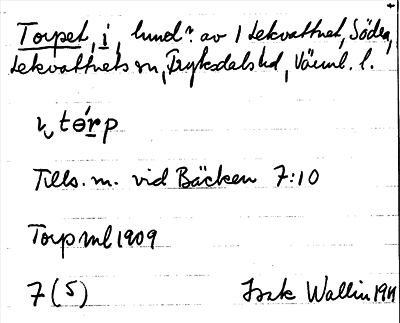 Torpet, i, lund? av 1 Lekvattnet, Södra,
Lekvattnets sn, Fryksdals hd, Värml. l.
tørp
Tills. m. vid Bäcken 7:10
Torp ml 1909
7 (5) Isak Wallin